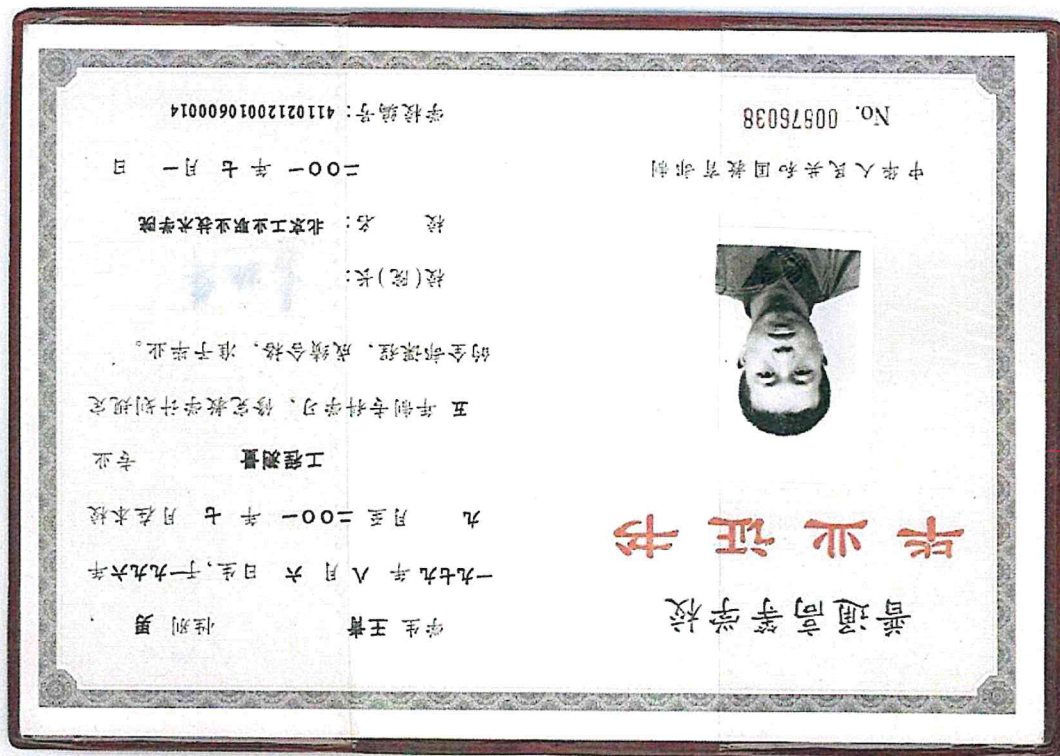 普通高等学校
毕业证书
中华人民共和国教育部制
No. 00876038
学生 王青 性别 男
一九七九年 八 月 六 日生,于一九九六年
九 月至 二00一 年 七 月在本校
工程测量 专业
五 年制专科学习、修完教学计划规定
的全部课程，成绩合格，准予毕业。
校(院)长:
校 名: 北京工业职业技术学院
二00一 年 七 月一 日
学校编号: 41102120010600014